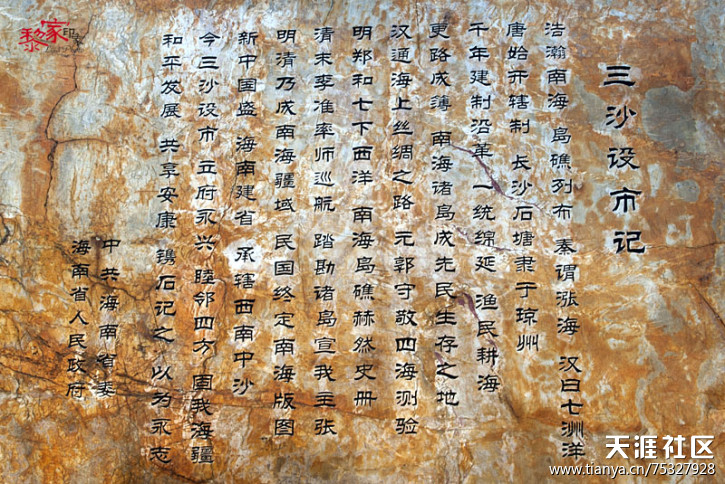 三沙设市记
浩瀚南海 岛礁列布 秦谓涨海 汉曰七洲洋
唐始并辖制 长沙石塘隶于琼州
千年建制沿革 一统绵延 渔民耕海
更路成薄 南海诸岛成先民生存之地
汉通海上丝绸之路 元郭守敬四海测验
明郑和七下西洋 南海岛礁赫然史册
清末李准率师巡航 踏勘诸岛宣我主张
明清乃成南海疆域 民国终定南海版图
新中国盛 海南建省 承辖西南中沙
今三沙设市 立府永兴 睦邻四方 固我海疆
和平发展 共享安康 镌石记之 以为永志
中共海南省委
海南省人民政府
黎家印
天涯社区
www.tianya.cn/75327928